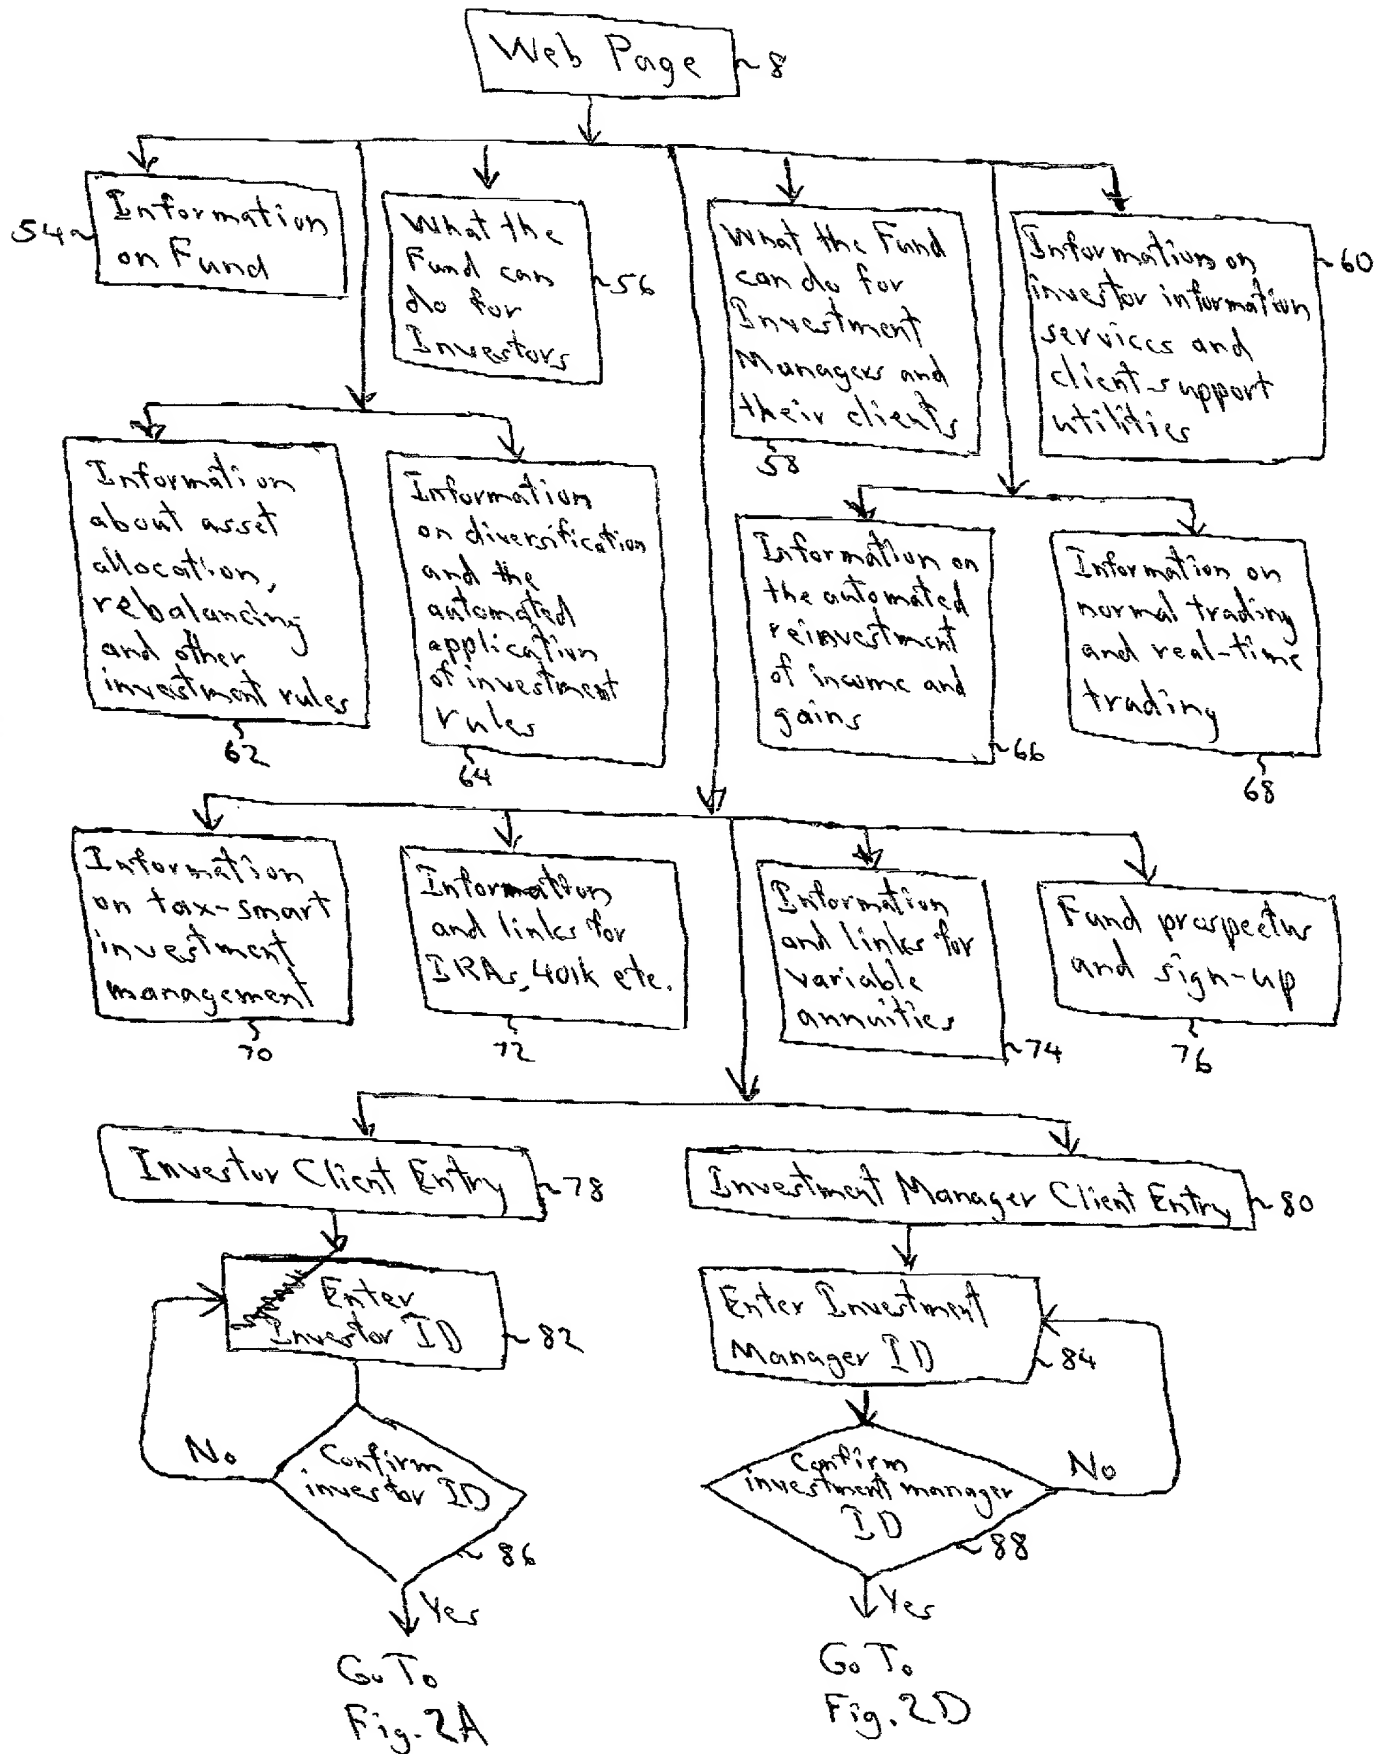 Web Page
8
Information
on Fund
54
What the
Fund can
do for
Investors
56
What the Fund
can do for
Investment
Managers and
their clients
58
Information on
investor information
services and
client-support
utilities
60
Information
about asset
allocation,
rebalancing
and other
investment rules
62
Information
on diversification
and the
automated
application
of investment
rules
64
Information on
the automated
reinvestment
of income and
gains
66
Information on
normal trading
and real-time
trading
68
Information
on tax-smart
investment
management
70
Information
and links for
IRAs, 401k etc.
72
Information
and links for
variable
annuities
74
Fund prospectus
and sign-up
76
Investor Client Entry
78
Investment Manager Client Entry
80
Enter
Investor ID
82
Enter Investment
Manager ID
84
No
Confirm
investor ID
86
Confirm
investment manager
ID
No
88
Yes
Go To
Fig. 2A
Yes
Go To
Fig. 2D